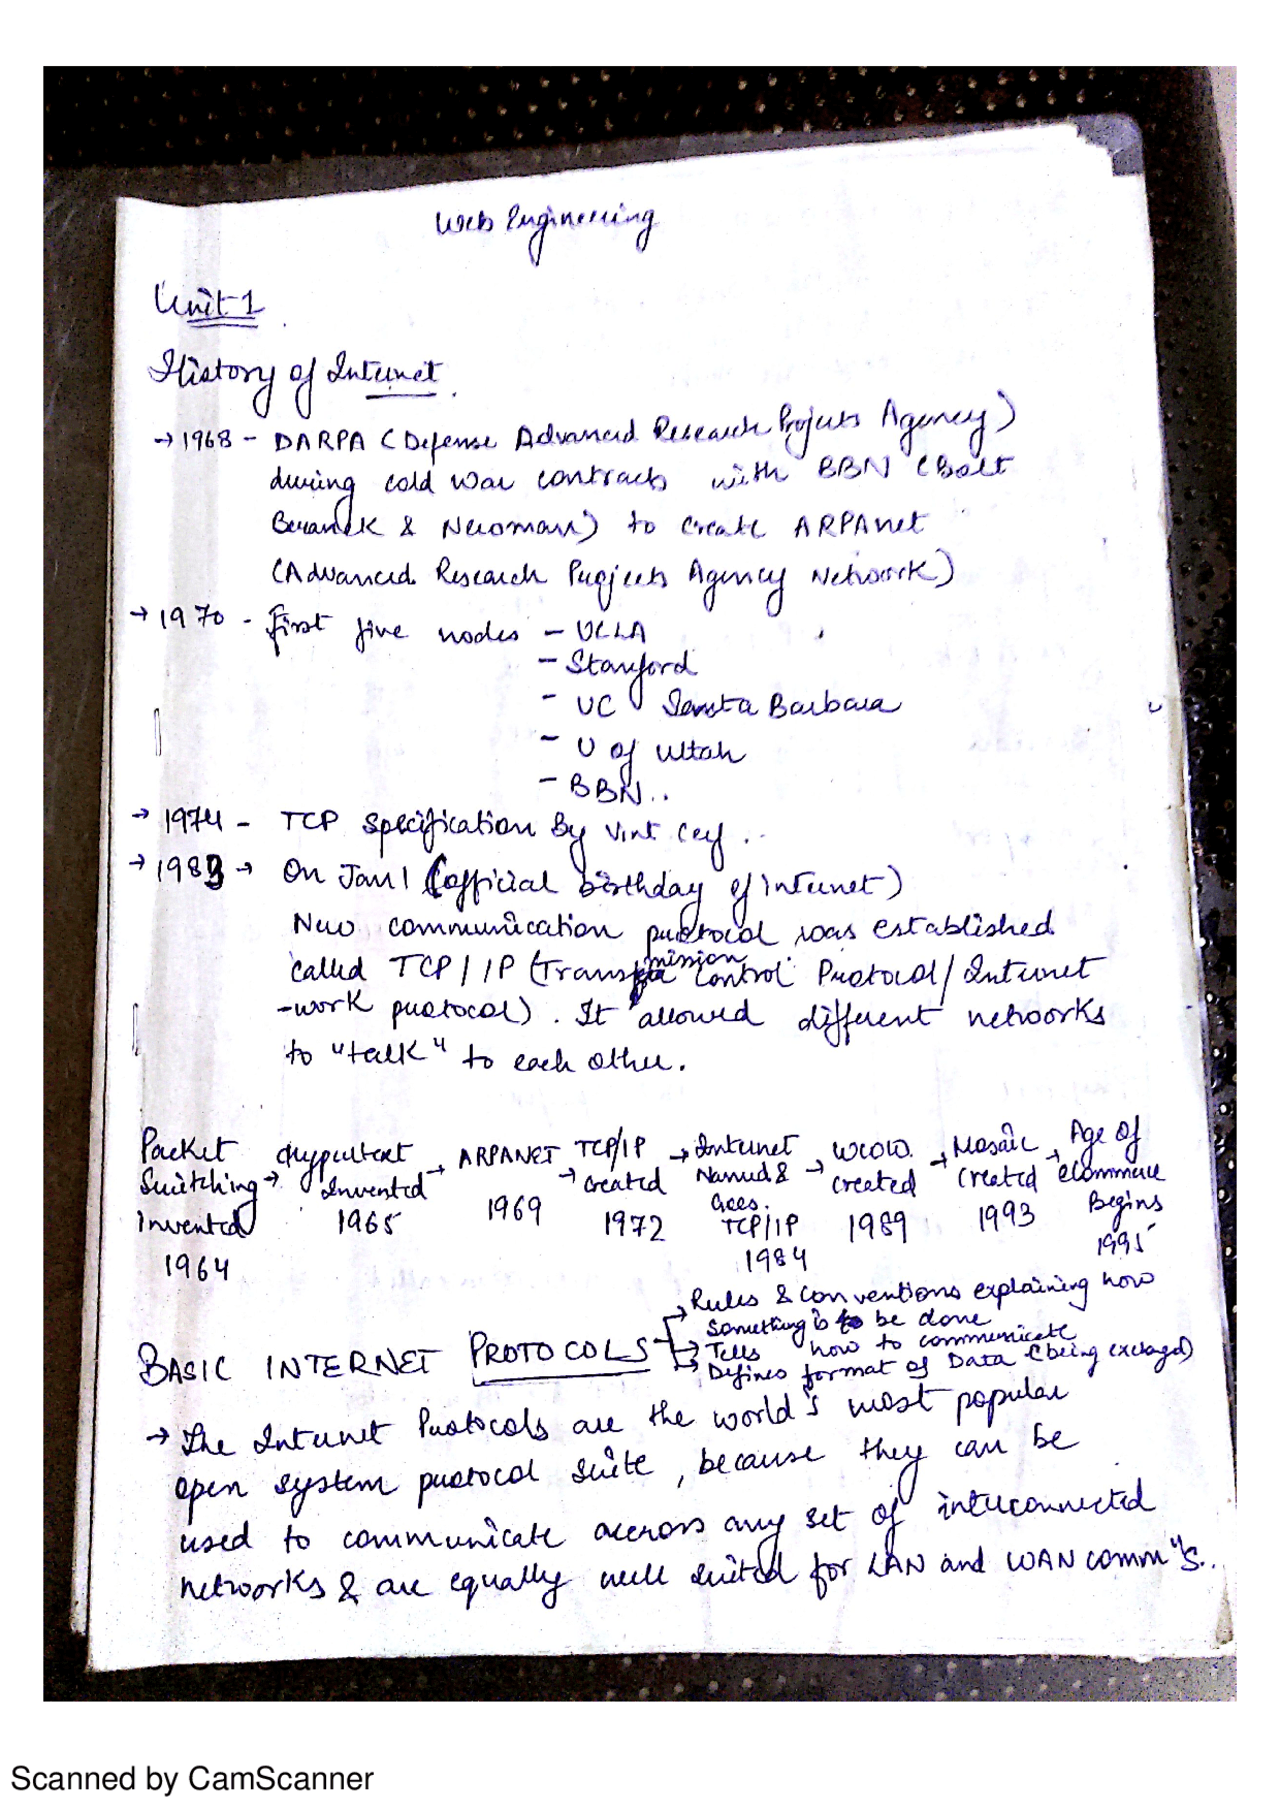 Web Engineering
Unit 1
History of Internet.
→ 1968 - DARPA (Defense Advanced Research Projects Agency)
during cold war contracts with BBN (Bolt
Beranek & Newman) to create ARPAnet
(Advanced Research Projects Agency Network)
→ 1970 - first five nodes - UCLA
- Stanford
- UC Santa Barbara
- U of Utah
- BBN..
→ 1974 - TCP specification By Vint Cerf..
→ 1983 → On Jan 1 (official birthday of internet)
New communication protocol was established
called TCP/IP (Transmission Control Protocol/Internet
-work protocol). It allowed different networks
to "talk" to each other.
Packet Switching Invented 1964 → Hypertext Invented 1965 → ARPANET 1969 → TCP/IP created 1972 → Internet Named & Goes TCP/IP 1984 → WWW created 1989 → Mosaic Created 1993 → Age of eCommerce Begins 1995
→ Rules & conventions explaining how
something is to be done
BASIC INTERNET PROTOCOLS → Tells how to communicate
→ Defines format of Data (being exchaged)
→ The Internet Protocols are the world's most popular
open system protocol suite, because they can be
used to communicate accross any set of interconnected
networks & are equally well suited for LAN and WAN comm"s..
Scanned by CamScanner